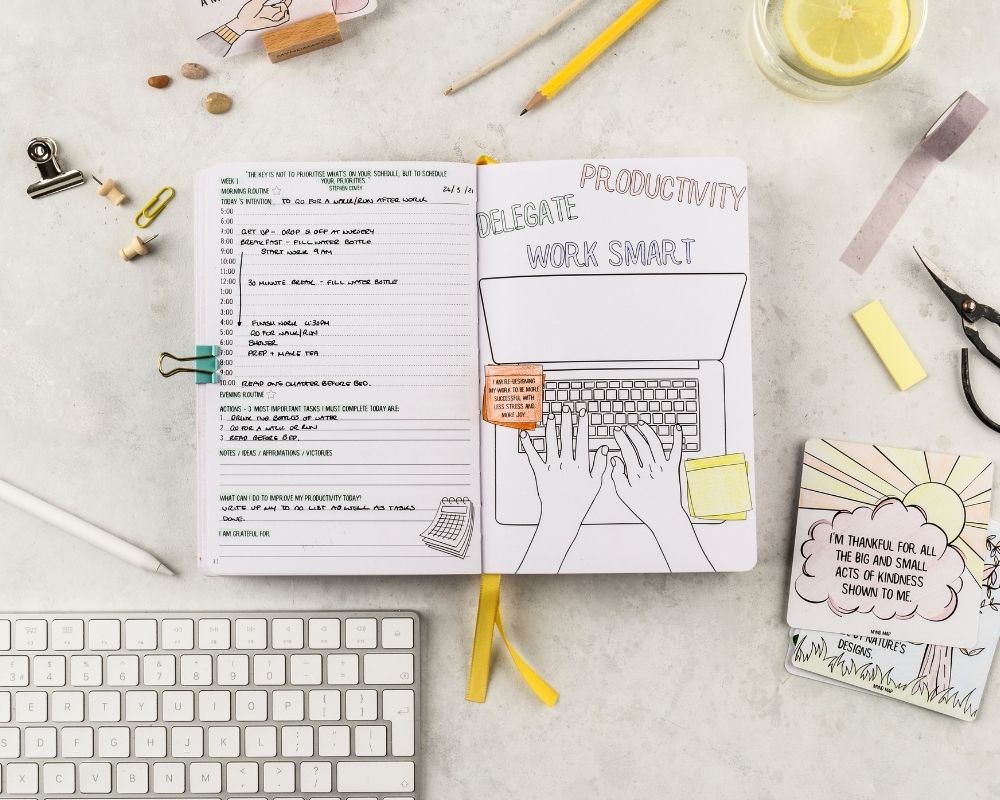 A M
MYNDMAP.CO
"THE KEY IS NOT TO PRIORITISE WHAT'S ON YOUR SCHEDULE, BUT TO SCHEDULE
YOUR PRIORITIES."
STEPHEN COVEY
WEEK 1
24/5/21
MORNING ROUTINE
TODAY'S INTENTION TO GO FOR A WALK/RUN AFTER WORK
5:00
6:00
7:00 GET UP - DROP S OFF AT NURSERY
8:00 BREAKFAST - FILL WATER BOTTLE
9:00 START WORK 9AM
10:00
11:00
12:00 30 MINUTE BREAK - FILL WATER BOTTLE
1:00
2:00
3:00
4:00 FINISH WORK 4:30PM
5:00 GO FOR WALK/RUN
6:00 SHOWER
7:00 PREP + MAKE TEA
8:00
9:00
10:00 READ ONE CHAPTER BEFORE BED.
EVENING ROUTINE
ACTIONS - 3 MOST IMPORTANT TASKS I MUST COMPLETE TODAY ARE:
1. DRINK TWO BOTTLES OF WATER
2. GO FOR A WALK OR RUN
3. READ BEFORE BED.
NOTES / IDEAS / AFFIRMATIONS / VICTORIES
WHAT CAN I DO TO IMPROVE MY PRODUCTIVITY TODAY?
WRITE UP MY TO DO LIST AS WELL AS TASKS
DONE.
I AM GRATEFUL FOR
PRODUCTIVITY
DELEGATE
WORK SMART
I AM RE-DESIGNING
MY WORK TO BE MORE
SUCCESSFUL WITH
LESS STRESS AND
MORE JOY.
I'M THANKFUL FOR ALL
THE BIG AND SMALL
ACTS OF KINDNESS
SHOWN TO ME.
MYND MAP
BY NATURE'S
DESIGNS.
MYND MAP
3 4 5 6 7 8 9 0 - =
# $ % ^ & * ( ) _ +
E R T Y U I O P { }
[ ]
S D F G H J K L : "
; ' | \
X C V B N M < > ?
, . /